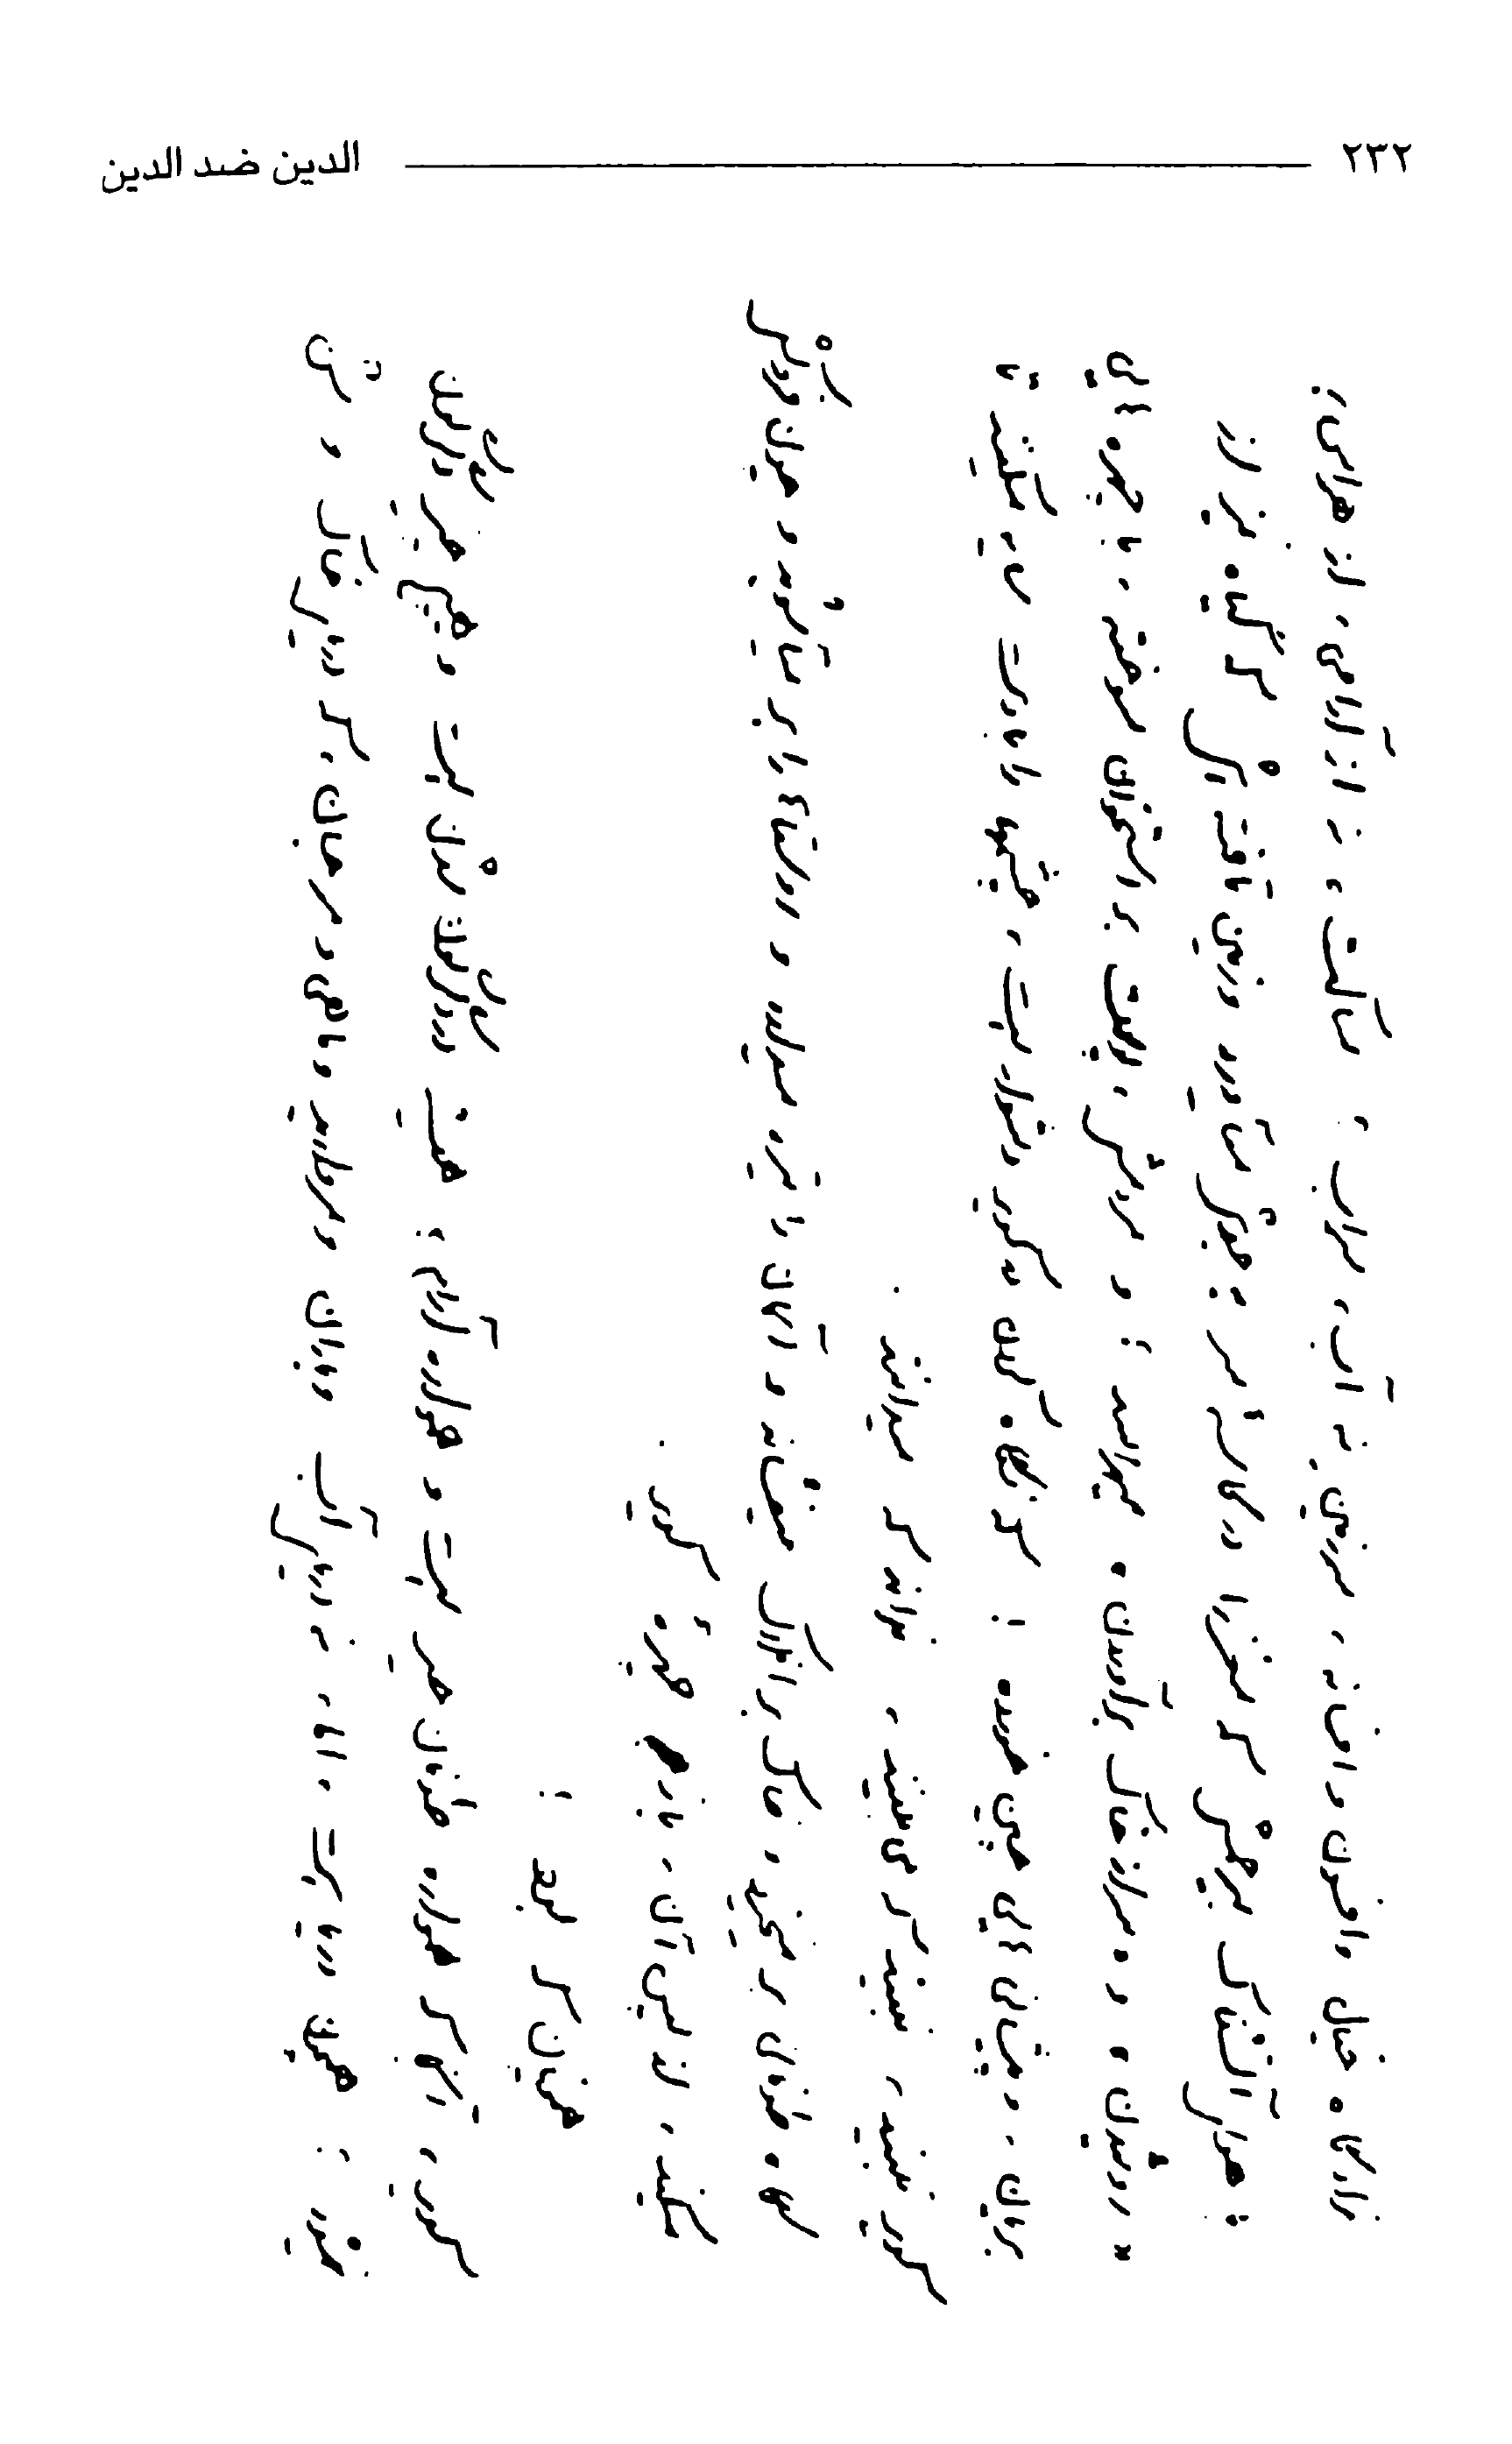 ٢٣٢ الدين ضد الدين
زادگاه خیال و افسون و افسانه ، سرزمین بی آب ، سراب ؛ ساکت ، نه از آرامی ، از هراس ؛
با هوای آتشناک بیرحمش که مغز را در کاسهٔ سر به جوش می‌آورد و زمین تافته‌اش که گیاه نیز از
« روئیدن » و « سر از خاک برآوردن » میهراسد ؛ و مردمش ، پوست بر استخوان سوخته ، با چهره‌هایی
بریان ، و پیشانی‌هایی چین خورده ! که نگاه کردن در کویر دشوار است ، چشمها را با دست سایه میکنند تا
کویر نبیند ، نبیند که می‌بیند ، نداند که میداند .
گاه طوفانی برمیخیزد و خاک بر افلاک میفشاند و آسمان را تیره میسازد و روستاها را بر می‌آشوبد و چون فروکش
میکند ، از پس آن ، باز هم چهرهٔ کویر .
همچنان که بود :
کویر ، آنجا که همواره طوفان خیز است و همواره آرام ؛ همیشه در دگرگون شدن است و هیچ چیز دگرگون
نمیشود : همچون دریاست ، اما ، نه دریای آب و باران و مروارید و ماهی و مرجان ، که دریای خاک و شن